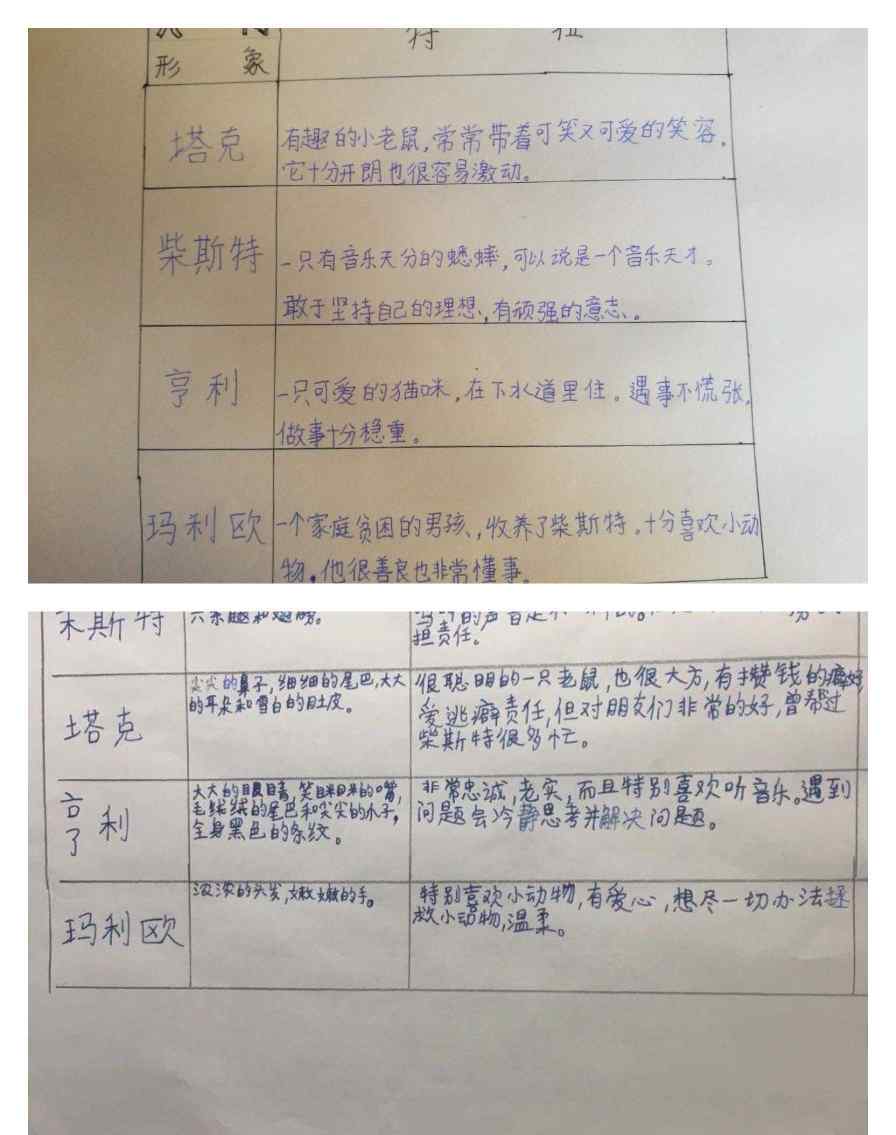 形 象
塔克
有趣的小老鼠,常常带着可笑又可爱的笑容。
它十分开朗也很容易激动。
柴斯特
一只有音乐天分的蟋蟀,可以说是一个音乐天才。
敢于坚持自己的理想,有顽强的意志。
亨利
一只可爱的猫咪,在下水道里住。遇事不慌张,
做事十分稳重。
玛利欧
一个家庭贫困的男孩,收养了柴斯特。十分喜欢小动
物。他很善良也非常懂事。
柴斯特
担责任。
塔克
尖尖的鼻子,细细的尾巴,大大
的耳朵和雪白的肚皮。
很聪明的一只老鼠,也很大方,有攒钱的癖好
爱逃癖责任,但对朋友们非常的好,曾帮过
柴斯特很多忙。
亨利
大大的眼睛,笑眯眯的嘴,
毛绒绒的尾巴和尖尖的爪子,
全身黑色的条纹。
非常忠诚,老实,而且特别喜欢听音乐。遇到
问题会冷静思考并解决问题。
玛利欧
浓浓的头发,嫩嫩的手。
特别喜欢小动物,有爱心,想尽一切办法拯
救小动物,温柔。